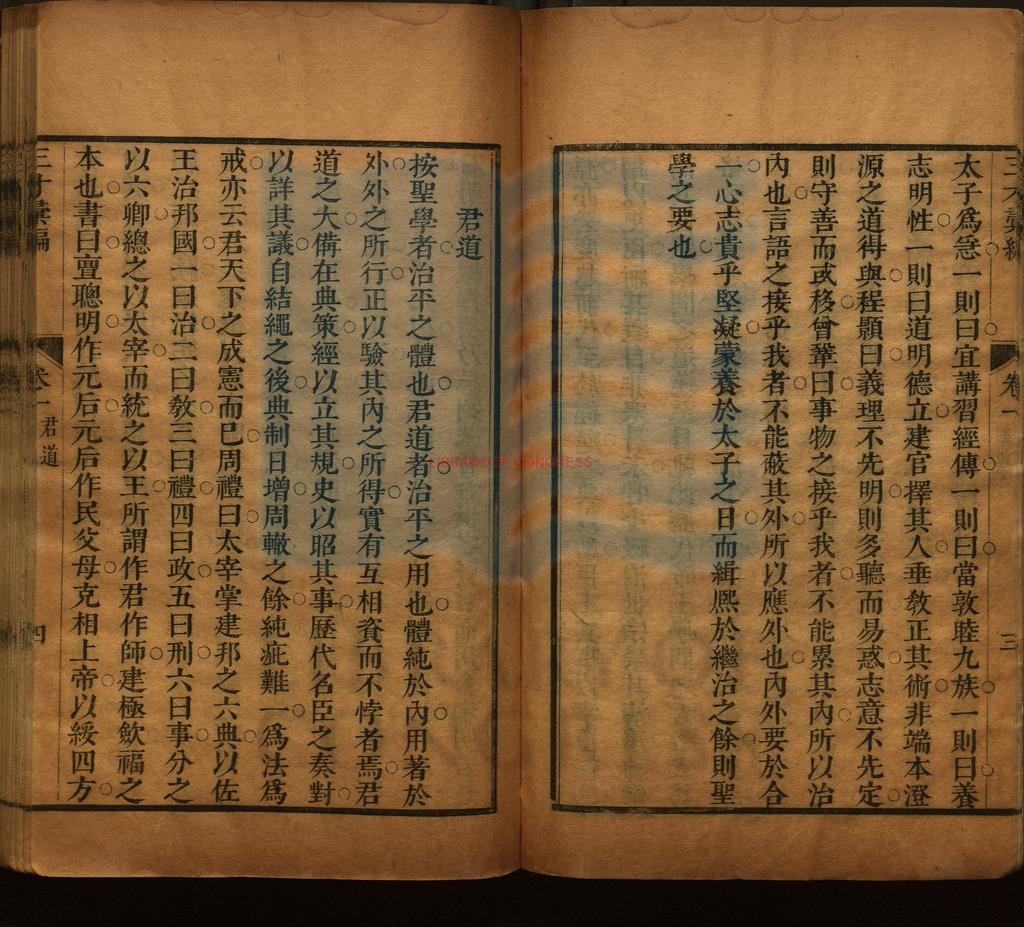 三才彙編
卷一
三
太子爲急一則曰宜講習經傳一則曰當敦睦九族一則曰養
志明性一則曰道明德立建官擇其人垂敎正其術非端本澄
源之道得與程顥曰義理不先明則多聽而易惑志意不先定
則守善而或移曾鞏曰事物之接乎我者不能累其內所以治
內也言語之接乎我者不能蔽其外所以應外也內外要於合
一心志貴乎堅凝蒙養於太子之日而緝熙於繼治之餘則聖
學之要也
君道
按聖學者治平之體也君道者治平之用也體純於內用著於
外外之所行正以驗其內之所得實有互相資而不悖者焉君
道之大備在典策經以立其規史以昭其事歷代名臣之奏對
以詳其議自結繩之後典制日增周轍之餘純疵難一爲法爲
戒亦云君天下之成憲而已周禮曰太宰掌建邦之六典以佐
王治邦國一曰治二曰敎三曰禮四曰政五曰刑六曰事分之
以六卿總之以太宰而統之以王所謂作君作師建極斂福之
本也書曰亶聰明作元后元后作民父母克相上帝以綏四方
三才彙編
卷一 君道
四
LIBRARY OF CONGRESS